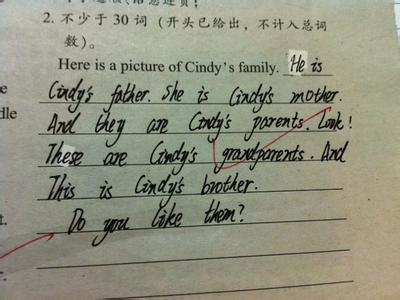 2. 不少于 30 词 (开头已给出，不计入总词
数)。
Here is a picture of Cindy's family. He is
Cindy's father. She is Cindy's mother.
And they are Cindy's parents. Look!
These are Cindy's grandparents. And
This is Cindy's brother.
Do you like them?